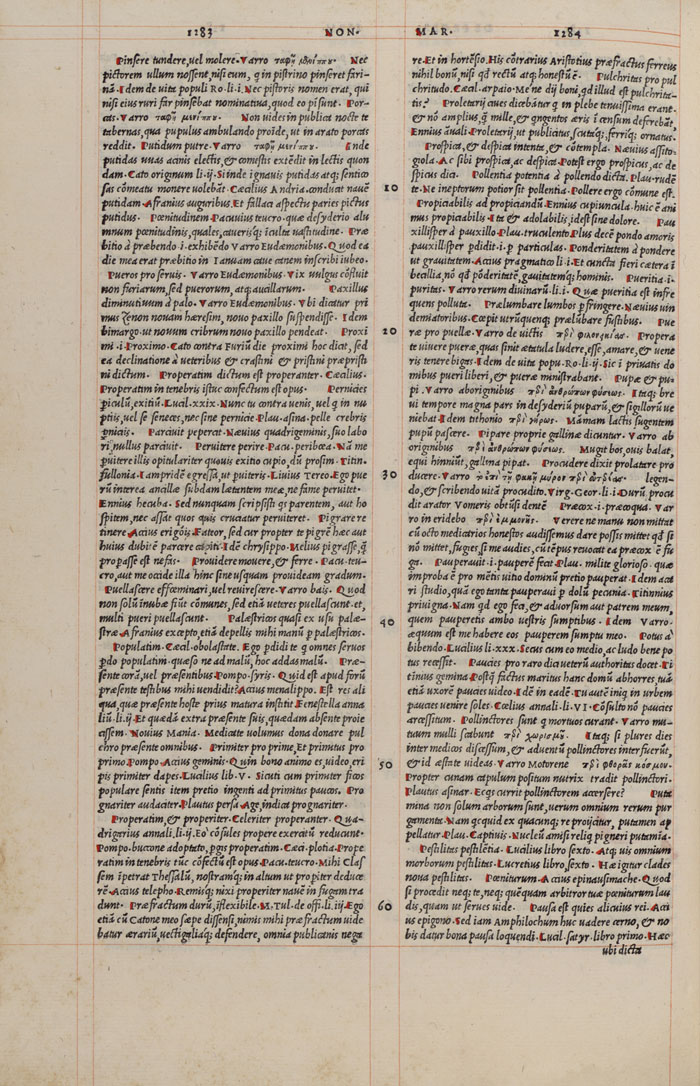 1283 NON·
Pinsere tundere, uel molere· Varro ταφὴ μενίππου· Nec
pictorem ullum nossent, nisi eum, q in pistrino pinseret fari-
nã· Idem de uita populi Ro·li·i· Nec pistoris nomen erat, qui
nisi eius ruri far pinsebat nominatus, quod eo pisunt· Por-
cas· Varro ταφὴ μενίππου· Non uides in publicat nocte te
tabernas, qua pupulus ambulando proĩde, ut in arato porcas
reddit· Putidum putre· Varro ταφὴ μενίππου· Ende
putidas uuas acinis electis, & comestis extẽdit in lectis quon
dam· Cato originum li·ij· Si inde ignauis putidas atq; senticos
sas cõmeatu monere uolebãt· Cæcilius Andria· conducit nauẽ
putidam· Afranius auguribus· Et fallaci aspectu paries pictus
putidus· Pœnitudinem· Pacuuius teucro· quæ desyderio alu
mnum pœnitudinis, quales, cateruisq; iculte uastitudine· Præ
bitio à præbendo·i·exhibẽdo Varro Eudæmonibus· Quod ea
die mea erat præbitio in Ianuam cauæ canem inscribi iubeo·
Pueros pro seruis· Varro Eudæmonibus· Vix uulgus cõfluit
non fieriarum, sed puerorum, atq; aucillarum· Paxillus
diminutiuum à palo· Varro Eudæmonibus· Vbi dicatur pri
mus Zenon nouam hæresim, nouo paxillo suspendisse· Idem
bimargo· ut nouum cribrum nouo paxillo pendeat· Proxi
mi·i·Proximo· Cato contra Furiũ die proximi hoc dicit, sed
ea declinatione à ueteribus & crastini & pristini præpristi
ni dictum· Properatim dictum est properanter· Cæcilius·
Properatim in tenebris istuc confectum est opus· Pernicies
piculũ, exitiũ· Lucil·xxix· Nunc tu contra uenis, uel q in nu
ptiis, uel se seneces, nec sine pernicie· Plau· asina· pelle crebris
pnicis· Parciuit pepercit· Næuius quadrigeminis, suo labo
ri nullus parciuit· Peruitere perire· Pacu· peribœa· Nã me
puitere illis opitulariter quouis exitio cupio, dũ prosim· Titin·
fullonia· Iampridẽ egressa, ut puiteris· Liuius Tereo· Ego pue
rũ interea ancillæ subdam lætentem meæ, ne fame peruitet·
Ennius hecuba· Sed nunquam scripsisti qs parentem, aut ho
spitem, nec assit quos quis cruciatur peruiteret· Pigrare re
tinere· Accius erigõis· Fateor, sed cur propter te pigrẽ hæc aut
huius dubitẽ parcere capiti· Idẽ chrysippo· Melius pigrasse, q̃
propasse est nefas· Prouidere mouere, & ferre· Pacu· teu-
cro, aut me occide illa hinc sine usquam prouideam gradum·
Puellascere effœminari, uel reuirescere· Varro bais· Quod
non solũ inubæ fiũt cõmunes, sed etiã ueteres puellascunt· et,
multi pueri puellascunt· Palæstricos quasi ex usu palæ-
stræ· Afranius excepto, etiã depellis mihi manũ p palæstricos·
Populatim· Cæcil·obolastate· Ego pdide te q omnes seruos
pdo populatim· quæso ne ad malũ, hoc addas malũ· Præ-
sente corã, uel præsentibus· Pompo·syris· Quid est apud forũ
præsente testibus mihi uendidit? Accius menalippo· Est res ali
qua, quæ præsente hoste prius matura institit· Fenestella anna
liũ·li·ij· Et quædã extra præsente suis, quædam absente proie
cissem· Nouius Mania· Medicate uolumus dona donare pul
chro præsente omnibus· Primiter pro prime· Et primitus pro
primo· Pompo· Accius geminis· Quin bono animo es, uideo, eri
pis primiter dapes· Lucilius lib·V· Sicuti cum primuter ficos
populare sentis item pretio ingenti ad primitus paucos· Pro
gnariter audacter· Plautus persa· Age, indica prognariter·
Properatim, & properiter· Celeriter properanter· Qua-
drigarius annali, li·ij· Eo' cõsules propere exercitũ reducunt·
Pompo· buccone adoptato, pgis properatim· Cæci·plotia· Prope
ratim in tenebris tũc cõfectũ est opus· Pacu·teucro· Mihi Clas
sem ĩpetrat Thessalũ, nostramq; in altum ut propiter deduce
rẽ· Accius telepho· Remisq; nixi properiter nauẽ in fugam tra
dunt· Præfractum durũ, iflexibile· M·Tul·de offi·li·iij· Ego
etiã cũ Catone meo sæpe dissensi, nimis mihi præfractum uide
batur ærariũ, uectigaliaq; defendere, omnia publicanis nega
10
20
30
40
50
60
MAR· 1284
re· Et in hortẽsio· His cõtrarius Aristotius præfractus ferreus
nihil bonũ, nisi qd rectũ atq; honestũ est· Pulchritas pro pul
chritudo· Cæcil·arpaio· Me ne dij boni, qd illud est pulchrita-
tis? Proletarij ciues dicebãtur q in plebe tenuissima erant·
& nõ amplius, q̃ mille, & qngentos æris ĩ censum deferebãt,
Ennius ãnali· Proletarij, ut publicitus, scutisq; ferriq; ornatus·
Prospica, & despica intenta, & cõtempla· Næuius assito-
giola· Ac sibi prospica, ac despica· Potest ergo prospicus, ac de
spicus dici· Pollentia potentia à pollendo dicta· Plau· ruden
te· Ne ineptorum potior sit pollentia· Pollere ergo cõmune est·
Propiciabilis ad propiciandũ· Ennius cupiuncula· huic ẽ ani
mus propiciabilis· Ita & adolabilis, idest sine dolore· Pau
xillisper à pauxillo· Plau· truculento· Plus decẽ pondo amoris
pauxillisper pdidit·i·p particulas· Ponderitatem à pondere
ut grauitatem· Accius pragmaticõ li·i· Et cuncta fieri cætera ĩ
becillia, nõ qd põderitatẽ, gauitatemq; hominis· Pueritia·i·
puritas· Varro rerum diuinarũ li·i· Quæ pueritia est infre
quens polluta· Prælumbare lumbos pfringere· Næuius uin
demiatoribus· Cœpit utrũquenq; prælũbare fustibus· Pue
ræ pro puellæ· Varro de uictis περὶ φιλονεικίας· Propera
te uiuere pueræ, quas sinit ætatula ludere, esse, amare, & uene
ris tenere bigas· Idem de uita popu·Ro·li·ij· Sic ĩ priuatis do
mibus pueri liberi, & pueræ ministrabant· Pupæ & pu-
pi· Varro aboriginibus περὶ ἀνθρώπων φύσεως· Itaq; bre
ui tempore magna pars in desyderiũ puparũ, & sigillorũ ue
niebat· Idem tithonio περὶ γήρως· Mãmam lactis sugentem
pupũ pascere· Pipare proprie gallinæ dicuntur· Varro ab
originibus περὶ ἀνθρώπων φύσεως· Mugit bos, ouis balat,
equi hinniũt, gallina pipat· Procudere dixit prolatare pro
ducere· Varro legen-
do, & scribendo uitã procudito· Virg·Geor·li·i· Durũ, procu
dit arator Vomeris obtũsi dentẽ Præcox·i·præcoqua· Var
ro in eridebo Verere ne manu non mittat
cũ octo medicarios honestos audissemus dare possis mitter qd si
nõ mitter, fugies si me audies, cũ tẽpus reuocat ea præcox ẽ fu
ga· Pauperauit·i·pauperẽ fecit· Plau· milite glorioso· quæ
improba ẽ pro mẽtis uitio dominũ pretio pauperat· Idem aca
ri studio, quã ego tanta pauperaui p dolũ pecunia· Titinnius
priuigna· Nam qd ego feci, & aduorsum aut patrem meum,
quem pauperetis ambo uestris sumptibus· Idem Varro
æquum est me habere eos pauperem sumptu meo· Potus à
bibendo· Lucilius li·xxx· Secus cum eo medio, ac ludo bene po
tus recessit· Paucies pro raro dici ueterũ authoritas docet· Ti
tinius gemina· Postq̃ factus maritus hanc domũ abhorres, tuã
etiã uxorẽ paucies uideo· Idẽ in eadẽ· Tu autẽ iniq in urbem
paucies uenire soles· Cœlius annali·li·VI· Cõsulto nõ paucies
arcessitum· Pollinctores sunt q mortuos curant· Varro mu-
tuum muli scabunt περὶ χωρισμοῦ· Itaq; si plures dies
inter medicos discessum, & aduentũ pollinctores interfuerũt,
& id æstate uideas· Varro Motorene περὶ φθορᾶς κόσμου·
Propter cunam capulum positum nutrix tradit pollinctori·
Plautus asinar· Ecqs currit pollinctorem accersere? Puta
mina non solum arborum sunt, uerum omnium rerum pur
gamenta· Nam qcquid ex quacunq; re proijcitur, putamen ap
pellatur· Plau· Captiuis· Nucleũ amisi reliq pigneri putamĩa·
Pestilitas pestilẽtia· Lucilius libro sexto· Atq; uis omnium
morborum pestilitas· Lucretius libro sexto· Hæ igitur clades
noua pestilitas· Pœniturum· Accius epinausimache· Quod
si procedit neq; te, neq; quẽquam arbitror tuæ pœniturum lau
dis, quam ut serues uide· Pausa est quies alicuius rei· Acci
us epigono· Sed iam Amphilochum huc uadere cerno, & no
bis datur bona pausa loquendi· Lucil·satyr·libro primo· Hæc
ubi dicta